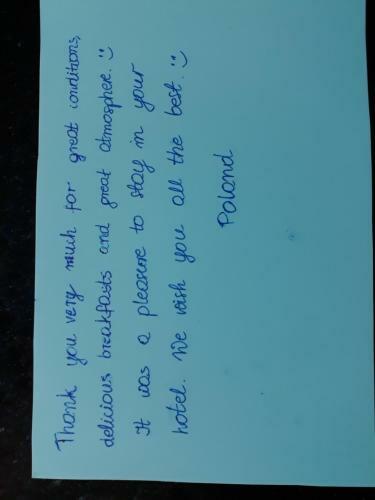 Thank you very much for great conditions,
delicious breakfasts and great atmosphere. :)
It was a pleasure to stay in your
hotel. We wish you all the best. :)
Poland